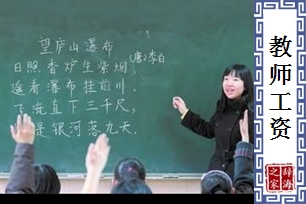 望庐山瀑布
(唐)李白
日照香炉生紫烟,
遥看瀑布挂前川.
飞流直下三千尺,
是银河落九天.
教师工资
辞海之家